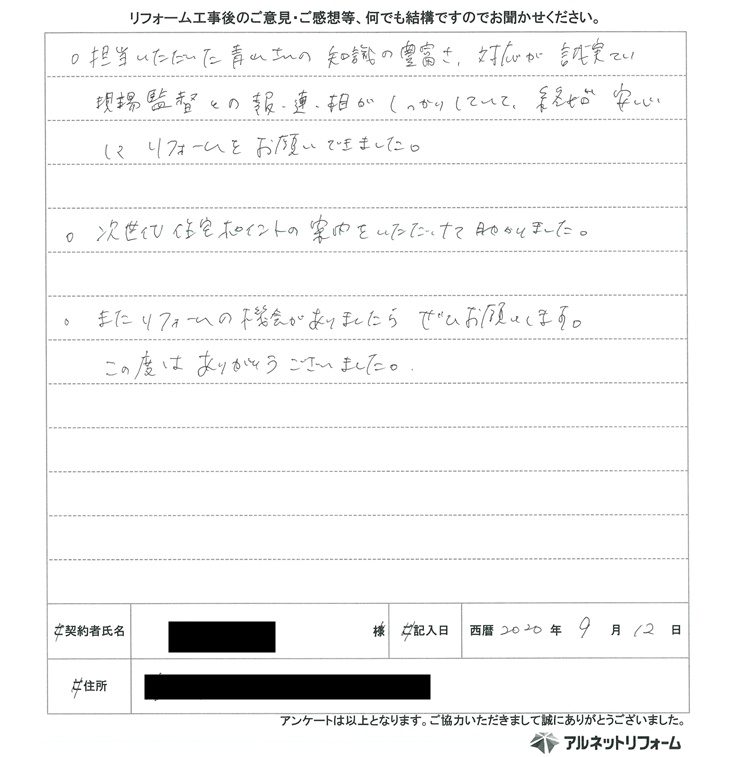 リフォーム工事後のご意見・ご感想等、何でも結構ですのでお聞かせください。
○ 担当いただいた青山さんの知識の豊富さ、対応が誠実でい
現場監督との報・連・相がしっかりしていて、終始安心
してリフォームをお願いできました。
○ 次世代住宅ポイントの案内をいただけて助かりました。
○ またリフォームの機会がありましたらぜひお願いします。
この度はありがとうございました。
契約者氏名 様 記入日 西暦 2020 年 9 月 12 日
住所
アンケートは以上となります。ご協力いただきまして誠にありがとうございました。
アルネットリフォーム